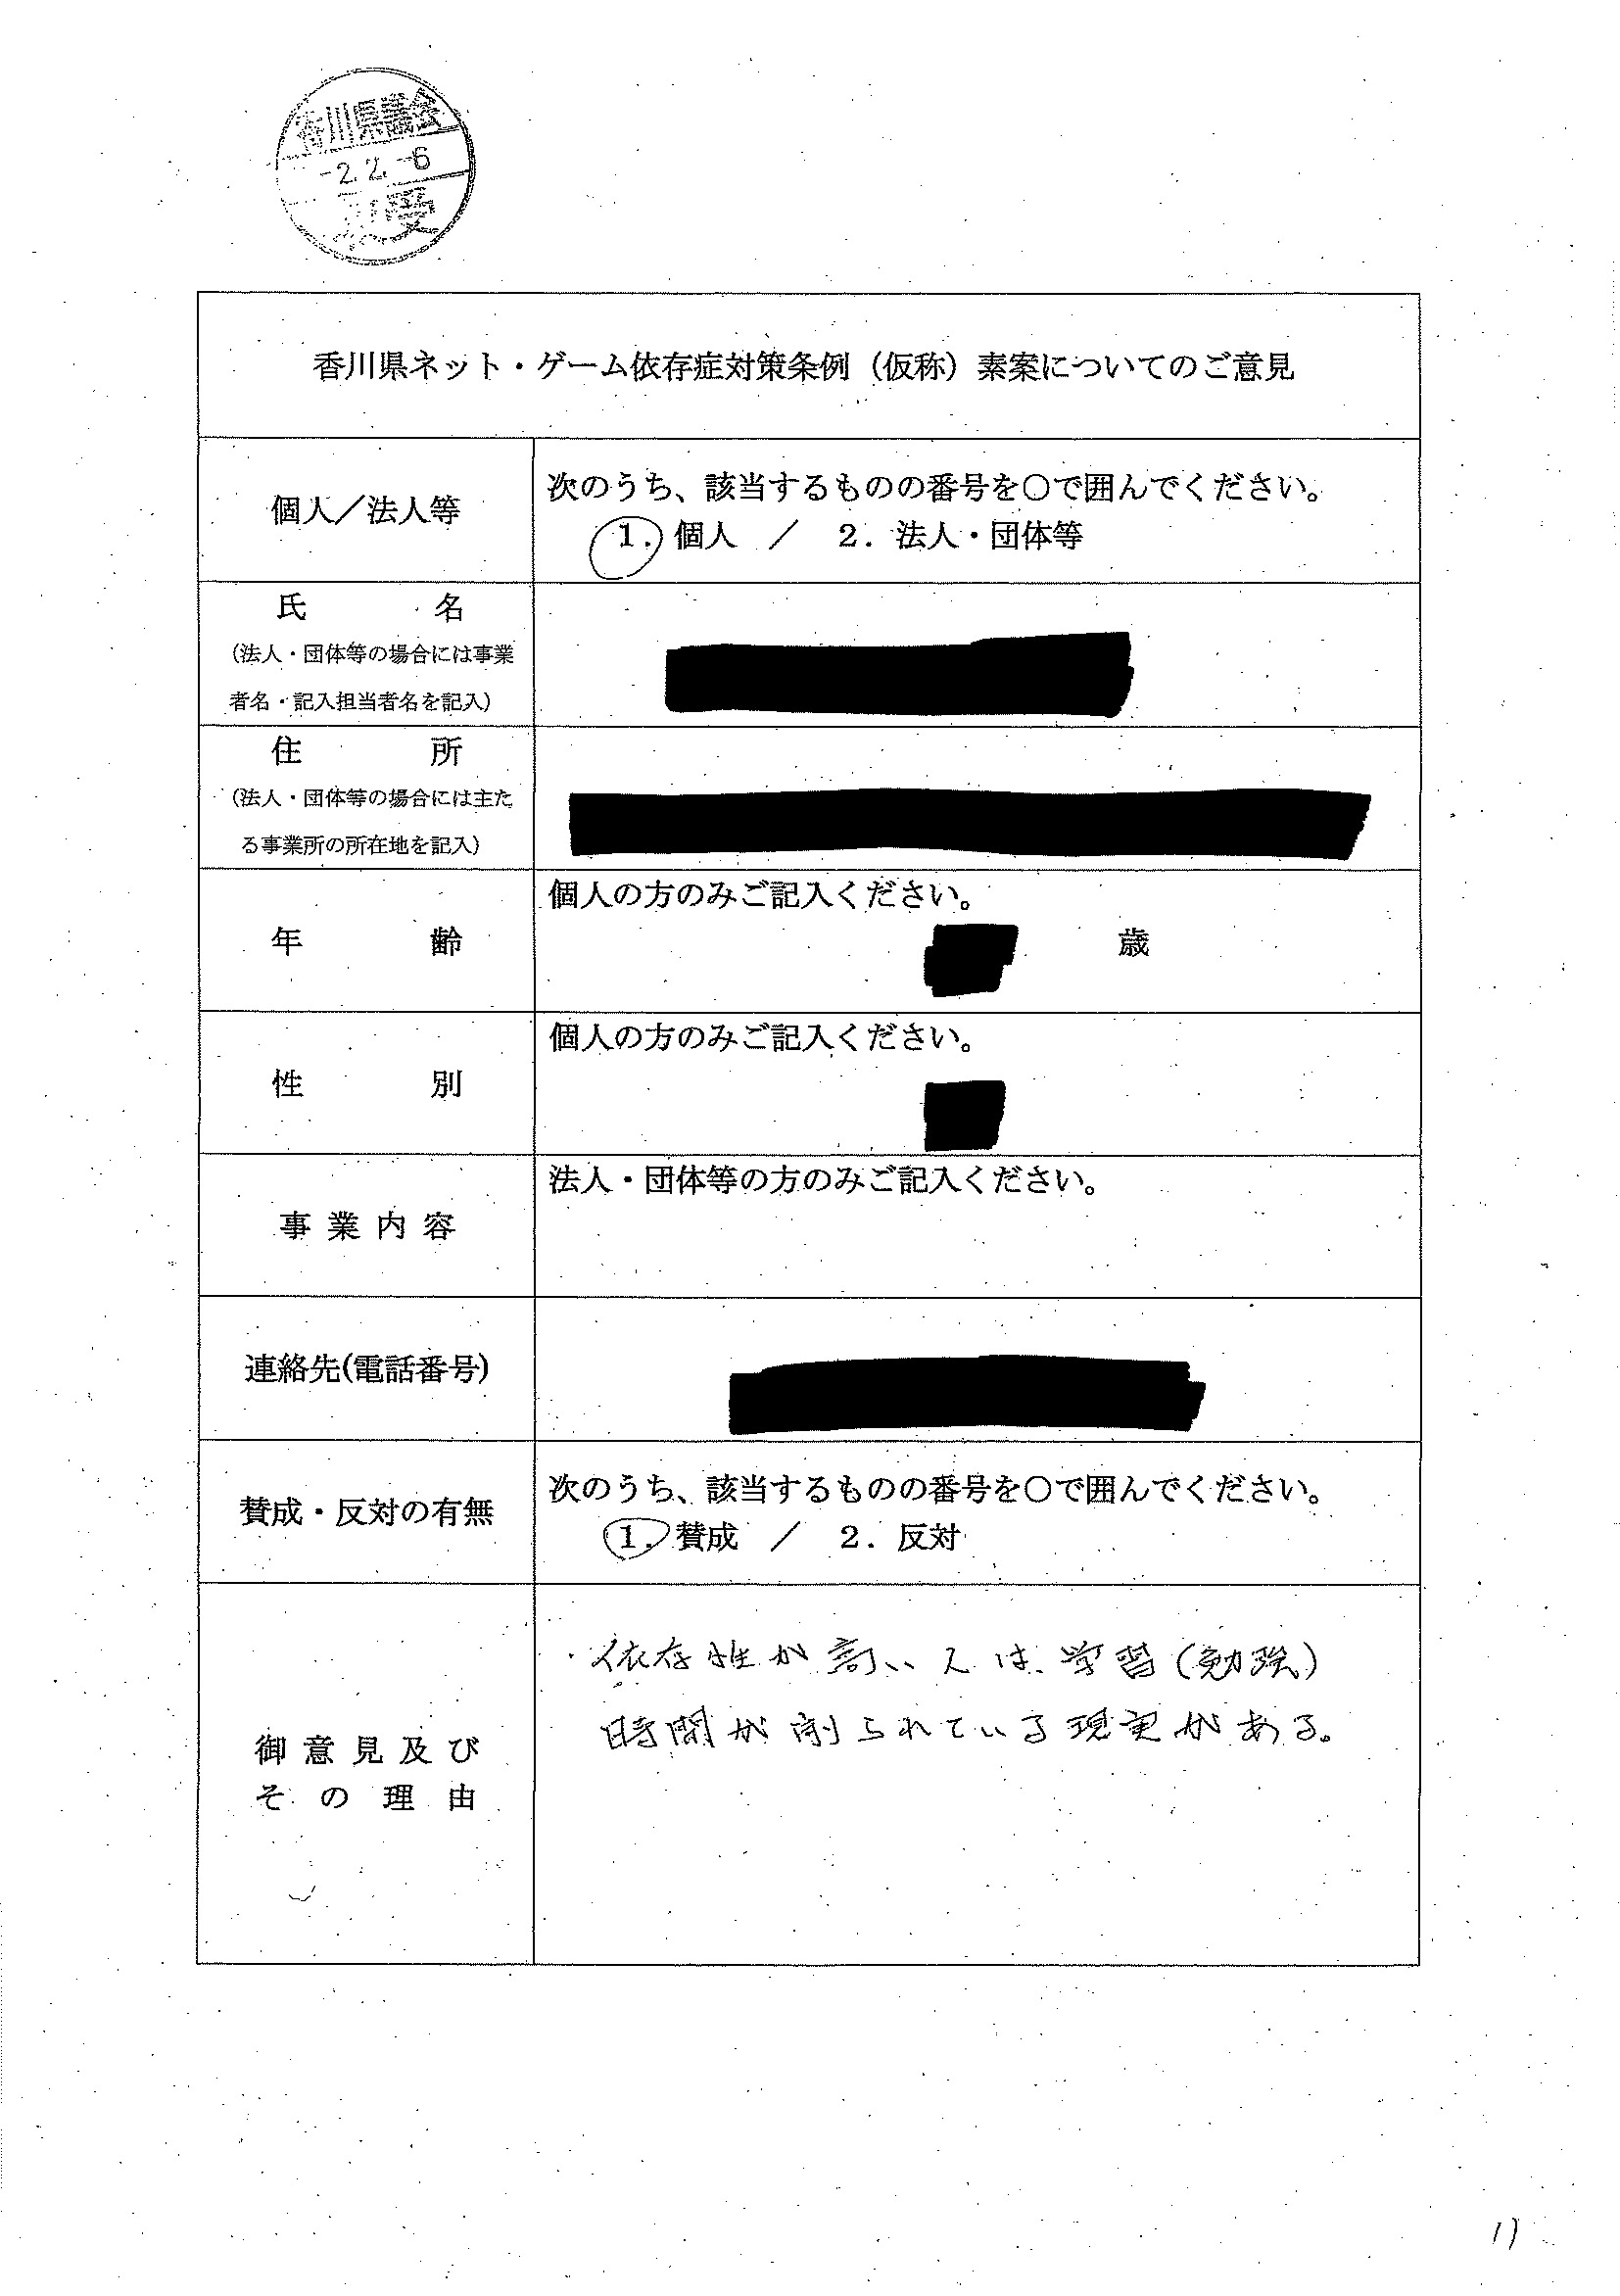 香川県議会
-2.2.-6
受
香川県ネット・ゲーム依存症対策条例（仮称）素案についてのご意見
個人／法人等
次のうち、該当するものの番号を〇で囲んでください。
1. 個人 ／ 2. 法人・団体等
氏名
（法人・団体等の場合には事業
者名・記入担当者名を記入）
住所
（法人・団体等の場合には主た
る事業所の所在地を記入）
年齢
個人の方のみご記入ください。
歳
性別
個人の方のみご記入ください。
事業内容
法人・団体等の方のみご記入ください。
連絡先(電話番号)
賛成・反対の有無
次のうち、該当するものの番号を〇で囲んでください。
1. 賛成 ／ 2. 反対
御意見及び
その理由
・依存性が高い人は、学習(勉強)
時間が削られている現実がある。
17